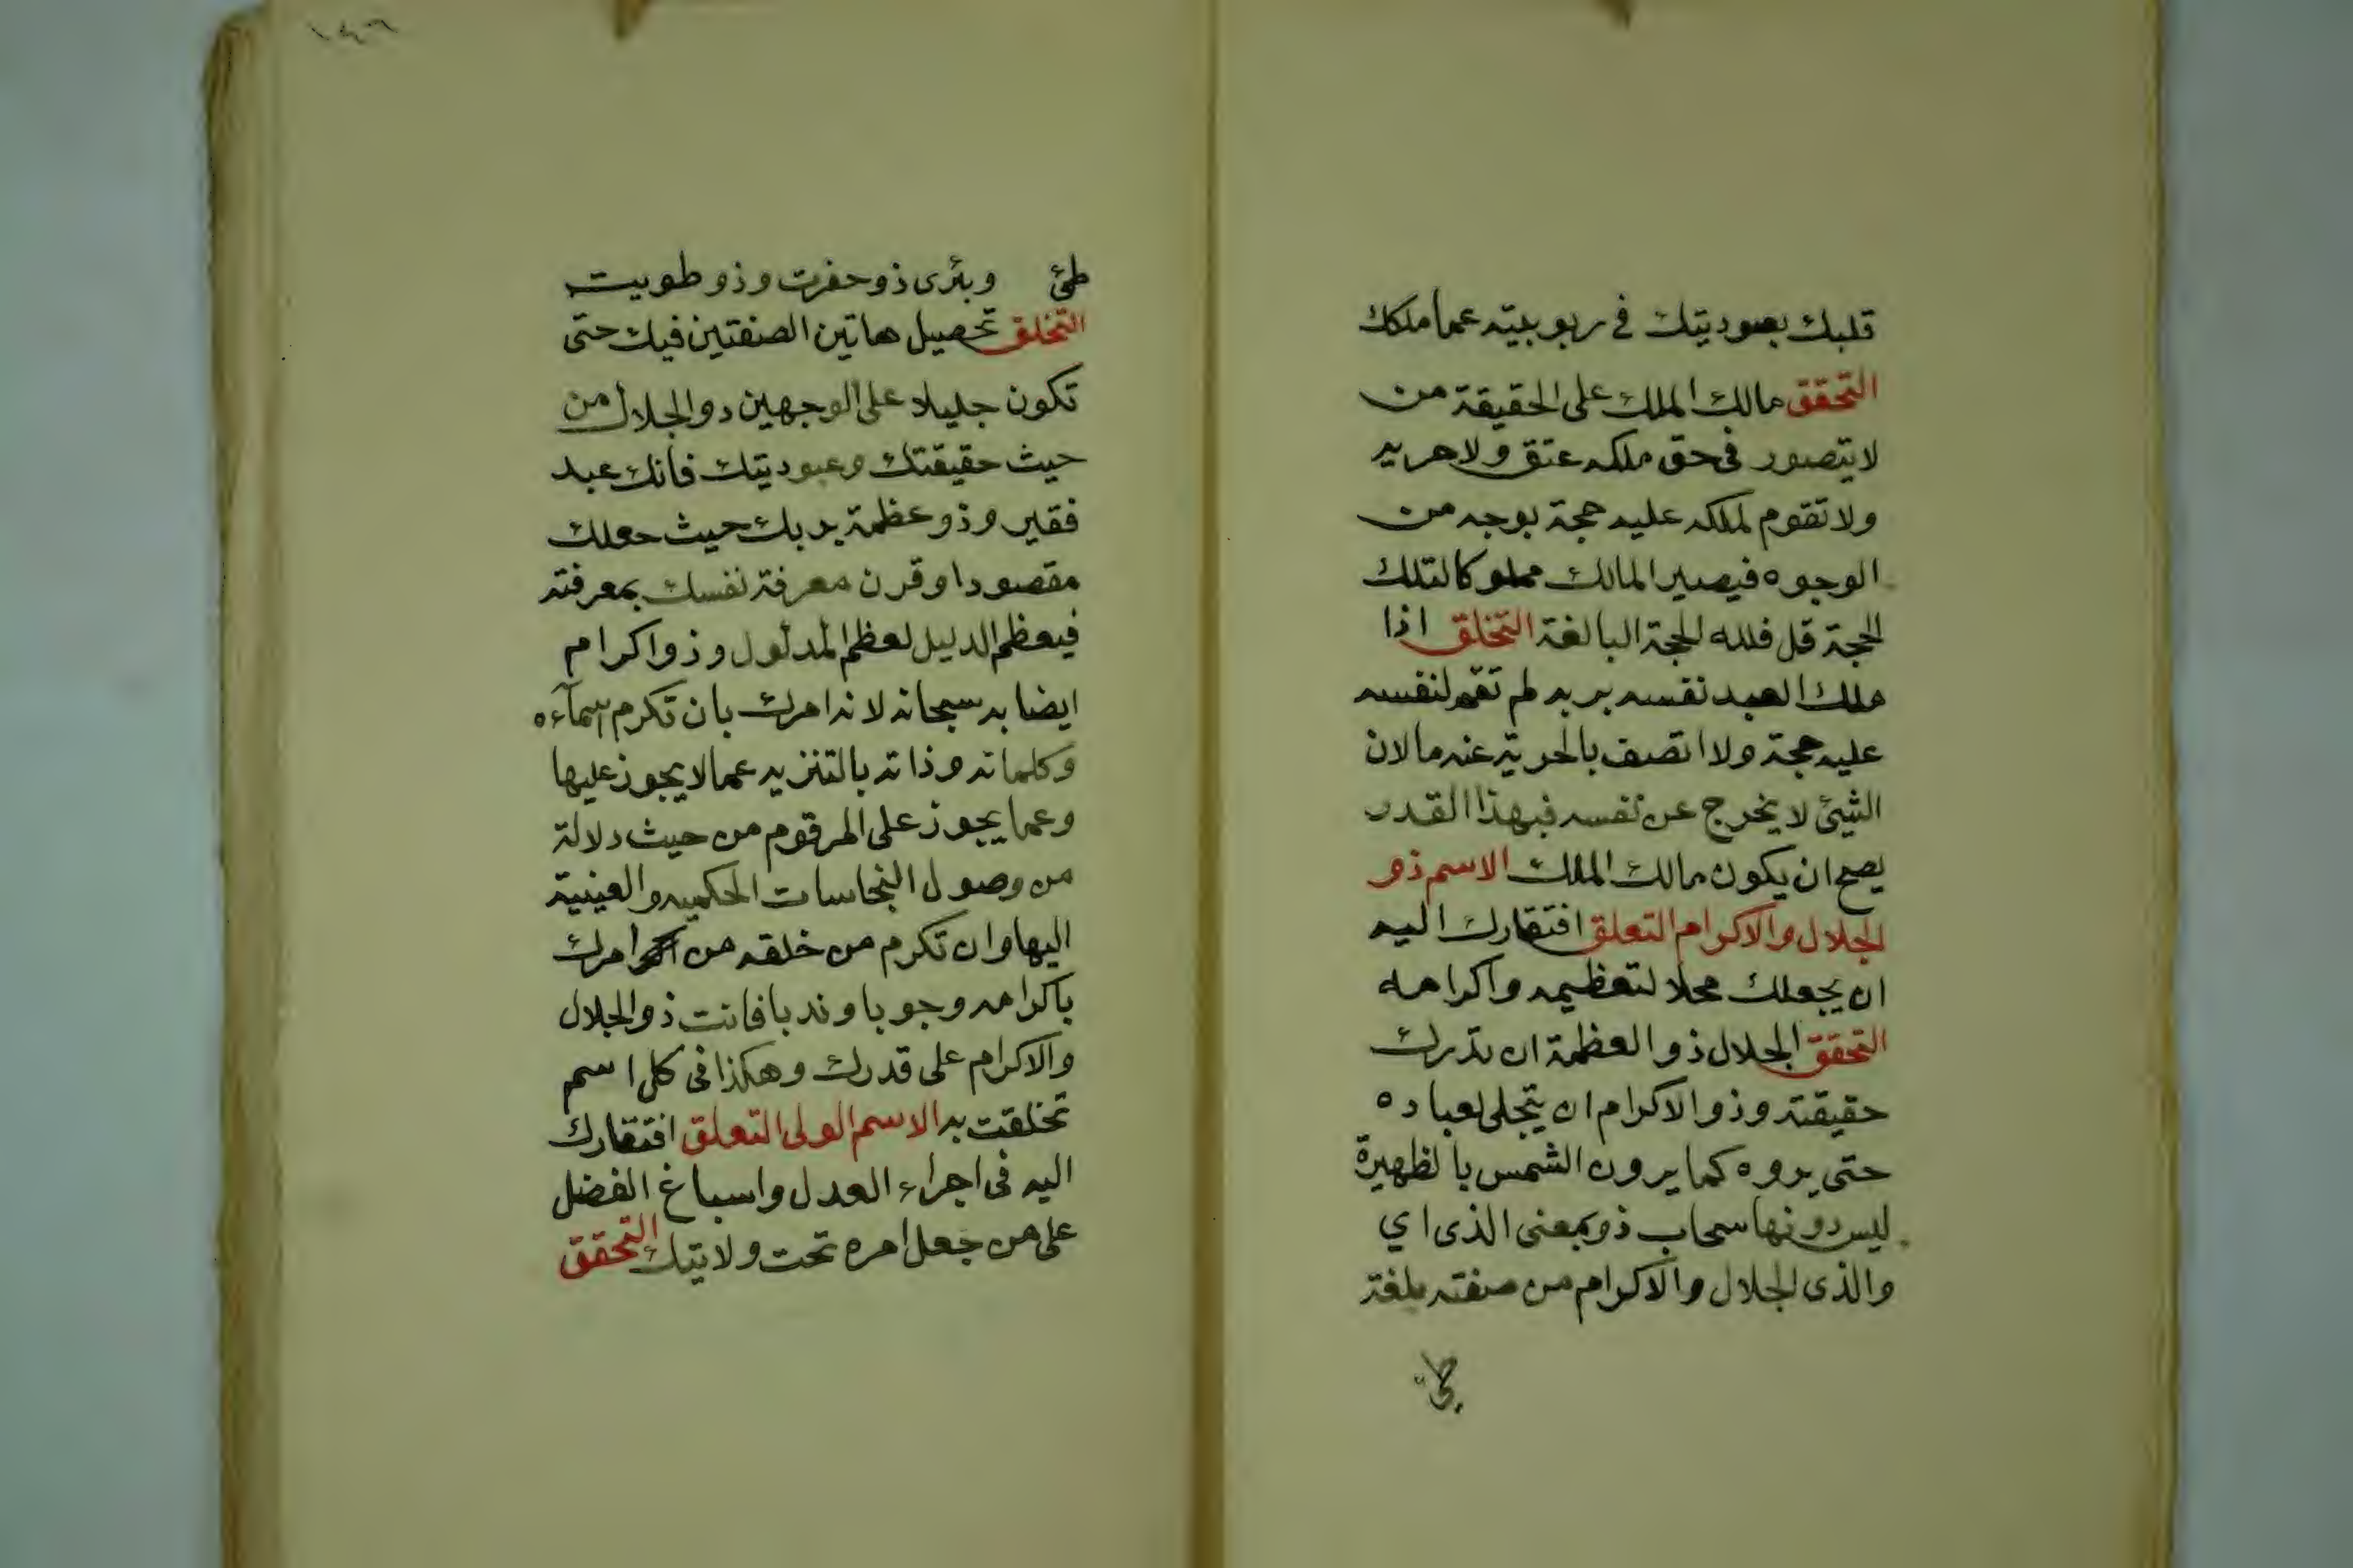 قلبك بعبوديتك في ربوبيته عما ملكك
التحقق مالك الملك على الحقيقة من
لا يتصور في حق ملكه عتق ولا
ولا تقوم لملكه عليه حجة بوجه من
الوجوه فيصير المالك مملوكا لتلك
الحجة قل فلله الحجة البالغة التخلق اذا
ملك العبد نفسه بربه لم تقم لنفسه
عليه حجة ولا اتصف بالحرية عنه ما لان
الشيئ لا يخرج عن نفسه فبهذا القدر
يصح ان يكون مالك الملك الاسم ذو
الجلال والاكرام التعلق افتقارك اليه
ان يجعلك محلا لتعظيمه واكرامه
التحقق الجلال ذو العظمة ان تدرك
حقيقته وذو الاكرام ان يتجلى لعباده
حتى يروه كما يرون الشمس بالظهيرة
ليس دونها سحاب ذو بمعنى الذى اي
والذى الجلال والاكرام من صفته بلغة
طيّ
١٤٦
طئ وبئرى ذو حفرت وذو طويت
التخلق تحصيل هاتين الصفتين فيك حتى
تكون جليلا على الوجهين ذو الجلال من
حيث حقيقتك وعبوديتك فانك عبد
فقير وذو عظمة بربك حيث جعلك
مقصودا وقرن معرفة نفسك بمعرفته
فيعظم الدليل لعظم المدلول وذو اكرام
ايضا به سبحانه لانه امرك بان تكرم اسمآءه
وكلماته وذاته بالتنزيه عما لا يجوز عليها
وعما يجوز على المرقوم من حيث دلالة
من وصول النجاسات الحكميه والعينية
اليها وان تكرم من خلقه من امرك
باكرامه وجوبا وندبا فانت ذو الجلال
والاكرام على قدرك وهكذا فى كل اسم
تخلقت به الاسم الولى التعلق افتقارك
اليه فى اجراء العدل واسباغ الفضل
على من جعل امره تحت ولايتك التحقق